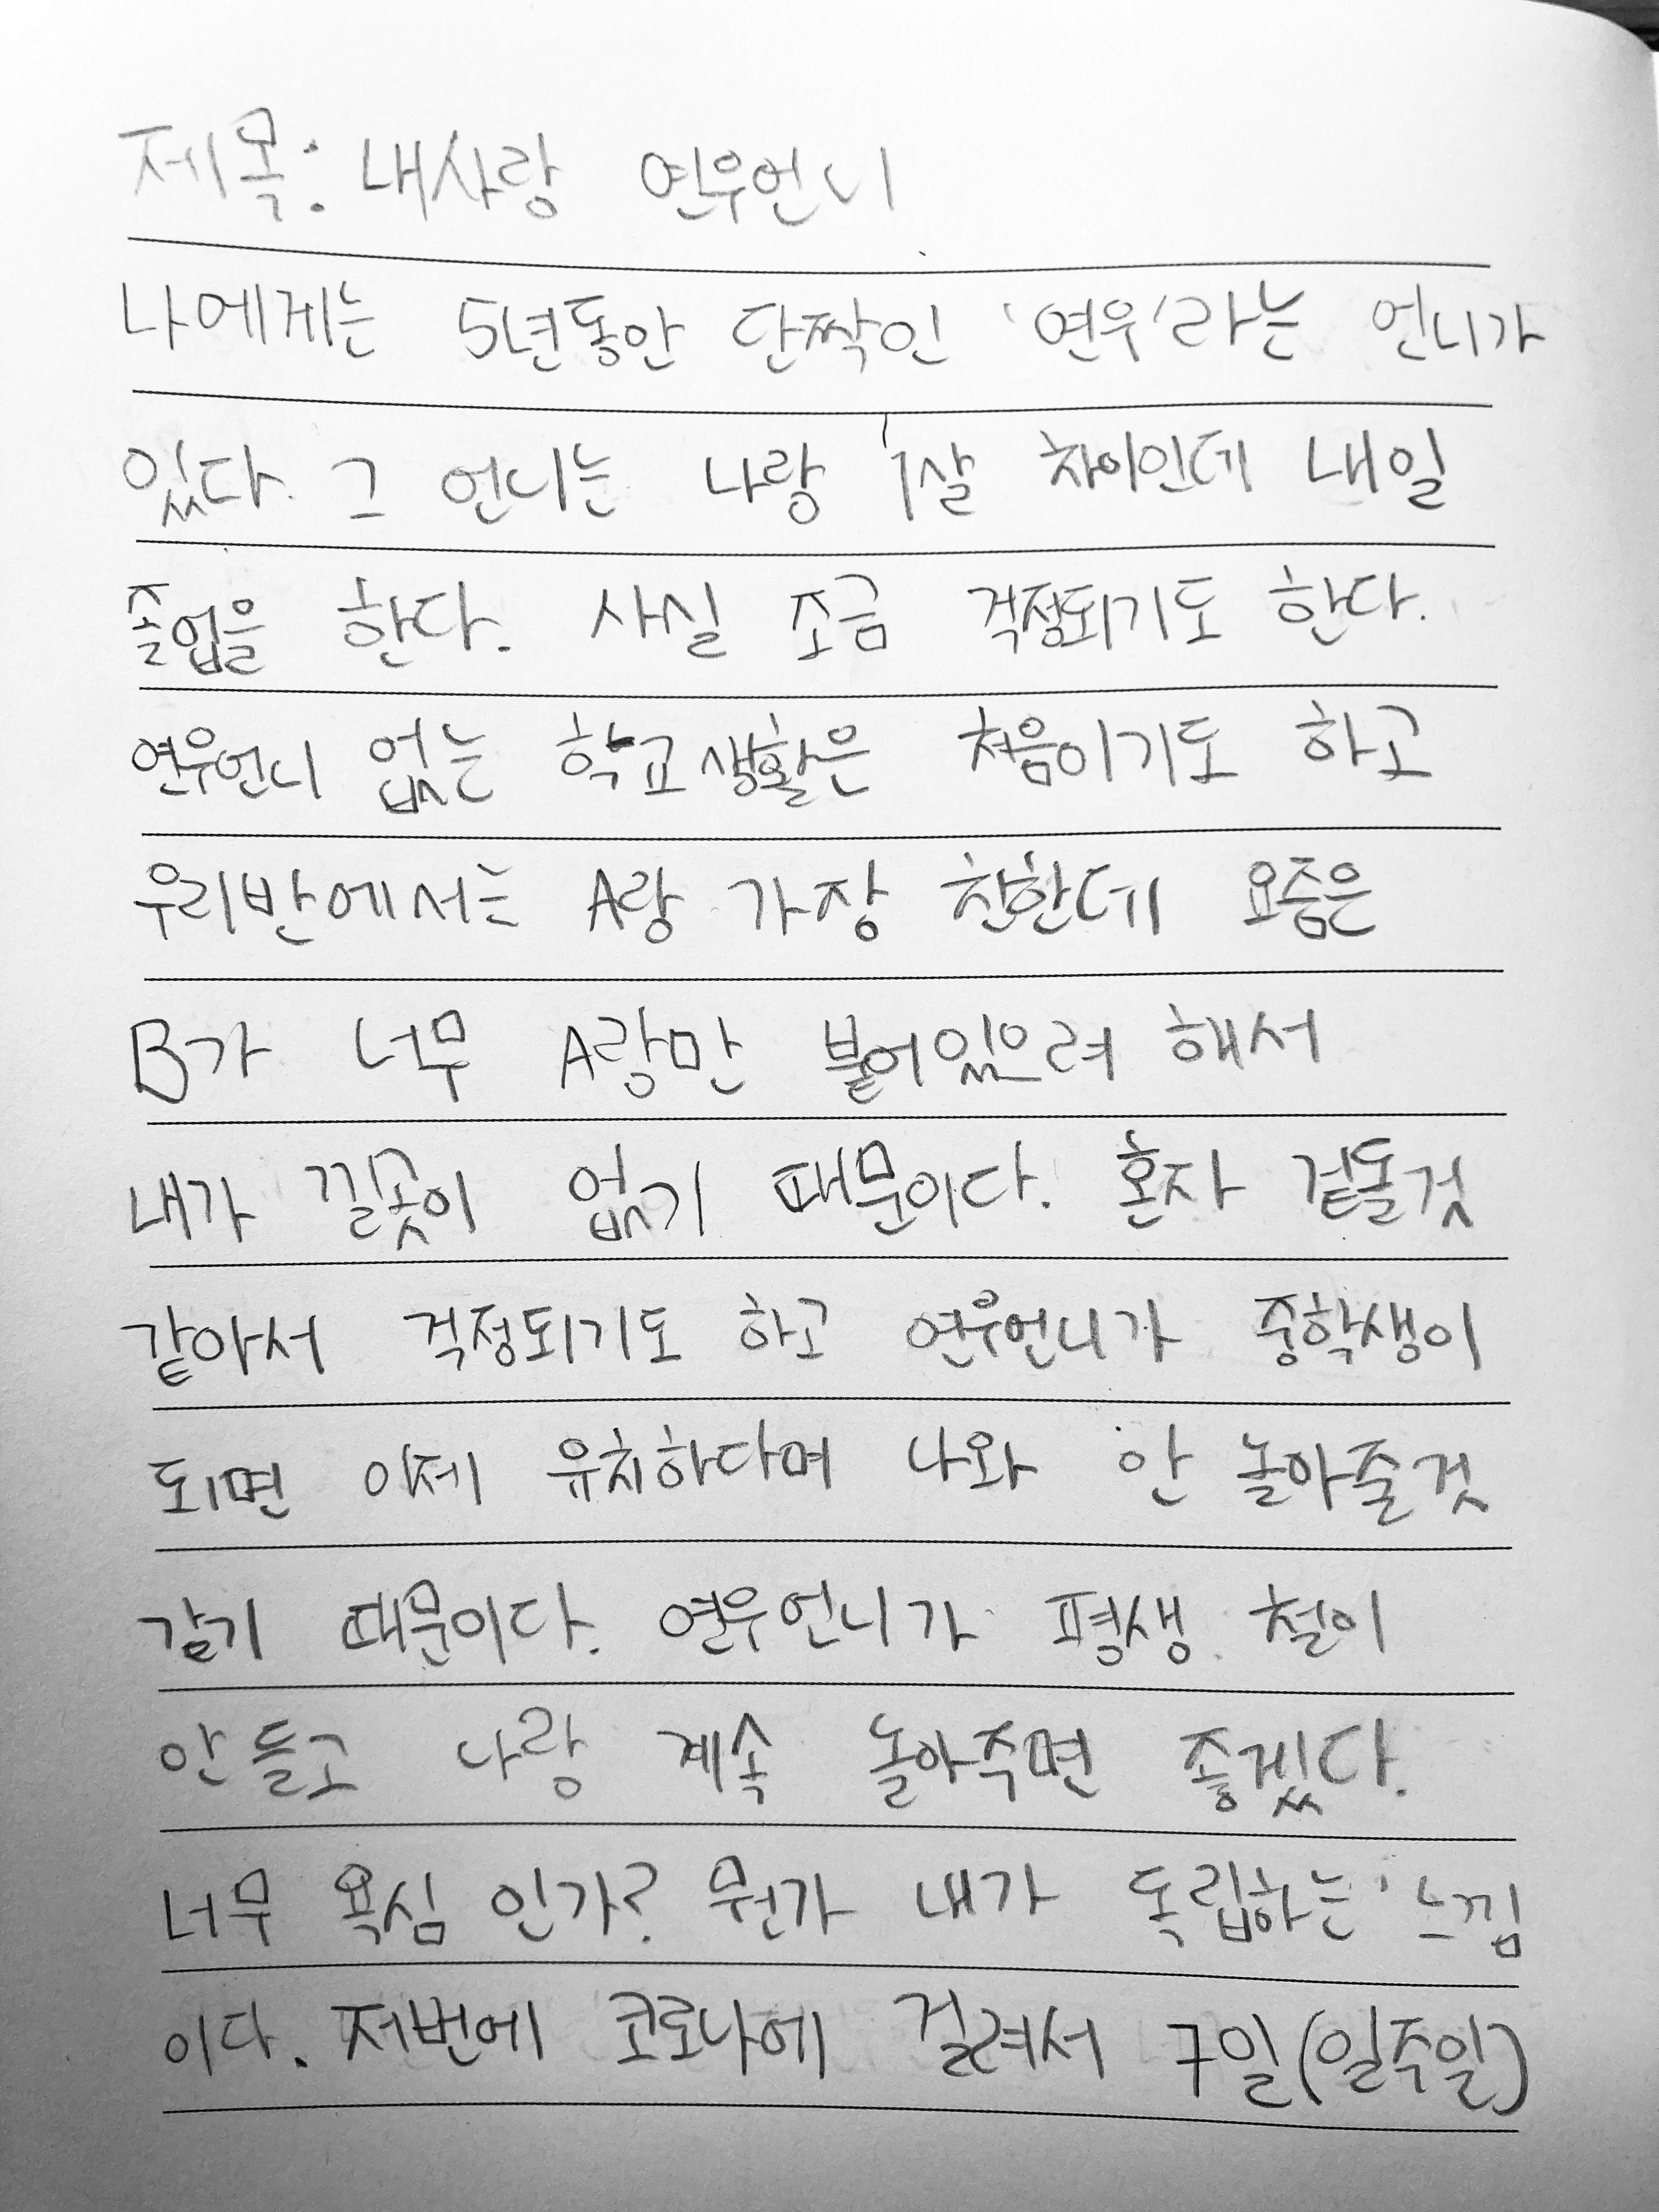 제목: 내사랑 연우언니
나에게는 5년동안 단짝인 '연우'라는 언니가
있다. 그 언니는 나랑 1살 차이인데 내일
졸업을 한다. 사실 조금 걱정되기도 한다.
연우언니 없는 학교생활은 처음이기도 하고
우리반에서는 A랑 가장 친한데 요즘은
B가 너무 A랑만 붙어있으려 해서
내가 낄곳이 없기 때문이다. 혼자 겉돌것
같아서 걱정되기도 하고 연우언니가 중학생이
되면 이제 유치하다며 나와 안 놀아줄것
같기 때문이다. 연우언니가 평생 철이
안들고 나랑 계속 놀아주면 좋겠다.
너무 욕심 인가? 뭔가 내가 독립하는 느낌
이다. 저번에 코로나에 걸려서 7일(일주일)